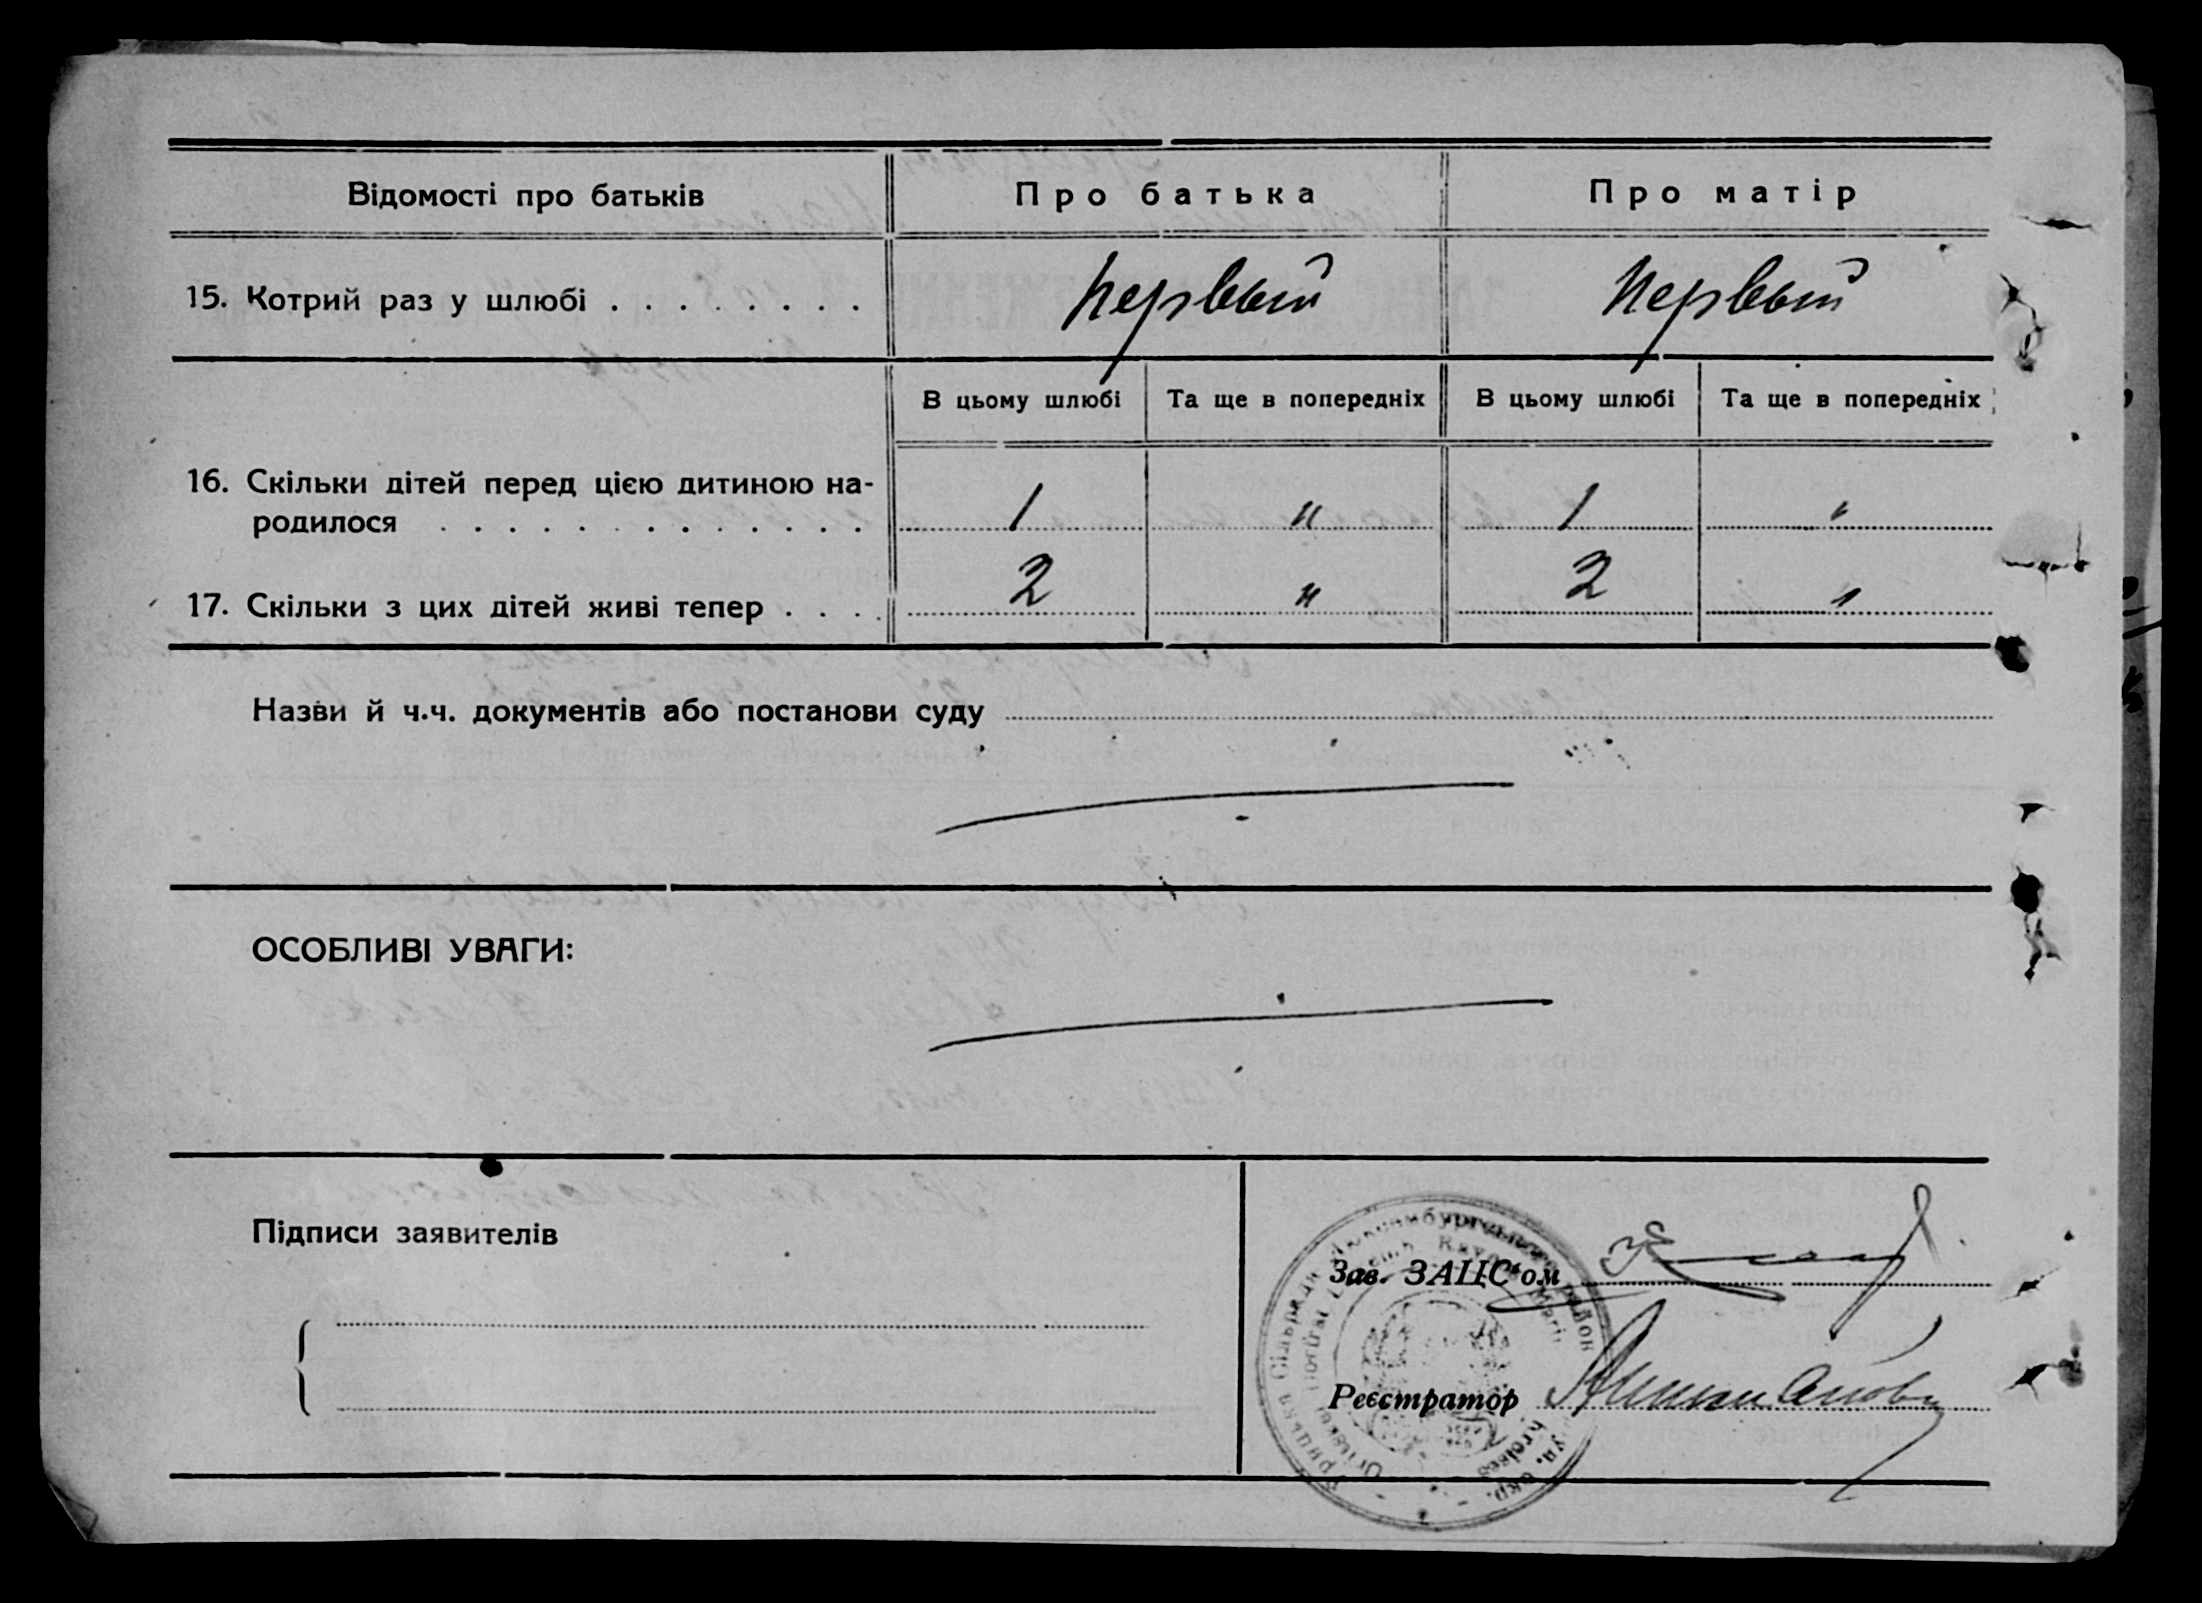 Відомості про батьків Про батька Про матір
15. Котрий раз у шлюбі . . . . . . . . Первый Первый
В цьому шлюбі Та ще в попередніх В цьому шлюбі Та ще в попередніх
16. Скільки дітей перед цією дитиною на-
родилося . . . . . . . . . . . . . 1 " 1 "
17. Скільки з цих дітей живі тепер . . . . 2 " 2 "
Назви й ч.ч. документів або постанови суду
ОСОБЛИВІ УВАГИ:
Підписи заявителів
Зав. ЗАЦС'ом
Реєстратор